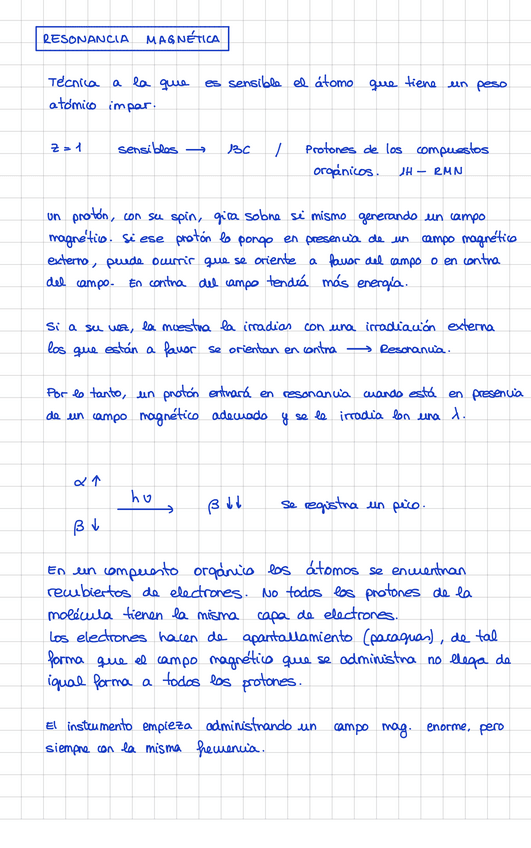 RESONANCIA MAGNÉTICA
Técnica a la que es sensible el átomo que tiene un peso
atómico impar.
Z = 1 sensibles → 13C / Protones de los compuestos
orgánicos. 1H – RMN
Un protón, con su spin, gira sobre si mismo generando un campo
magnético. Si ese protón lo pongo en presencia de un campo magnético
externo, puede ocurrir que se oriente a favor del campo o en contra
del campo. En contra del campo tendrá más energía.
Si a su vez, la muestra la irradias con una irradiación externa
los que están a favor se orientan en contra → Resonancia.
Por lo tanto, un protón entrará en resonancia cuando está en presencia
de un campo magnético adecuado y se le irradia con una λ.
α ↑
hυ → β ↓↓ se registra un pico.
β ↓
En un compuesto orgánico los átomos se encuentran
recubiertos de electrones. No todos los protones de la
molécula tienen la misma capa de electrones.
Los electrones hacen de apantallamiento (paraguas), de tal
forma que el campo magnético que se administra no llega de
igual forma a todos los protones.
El instrumento empieza administrando un campo mag. enorme, pero
siempre con la misma frecuencia.